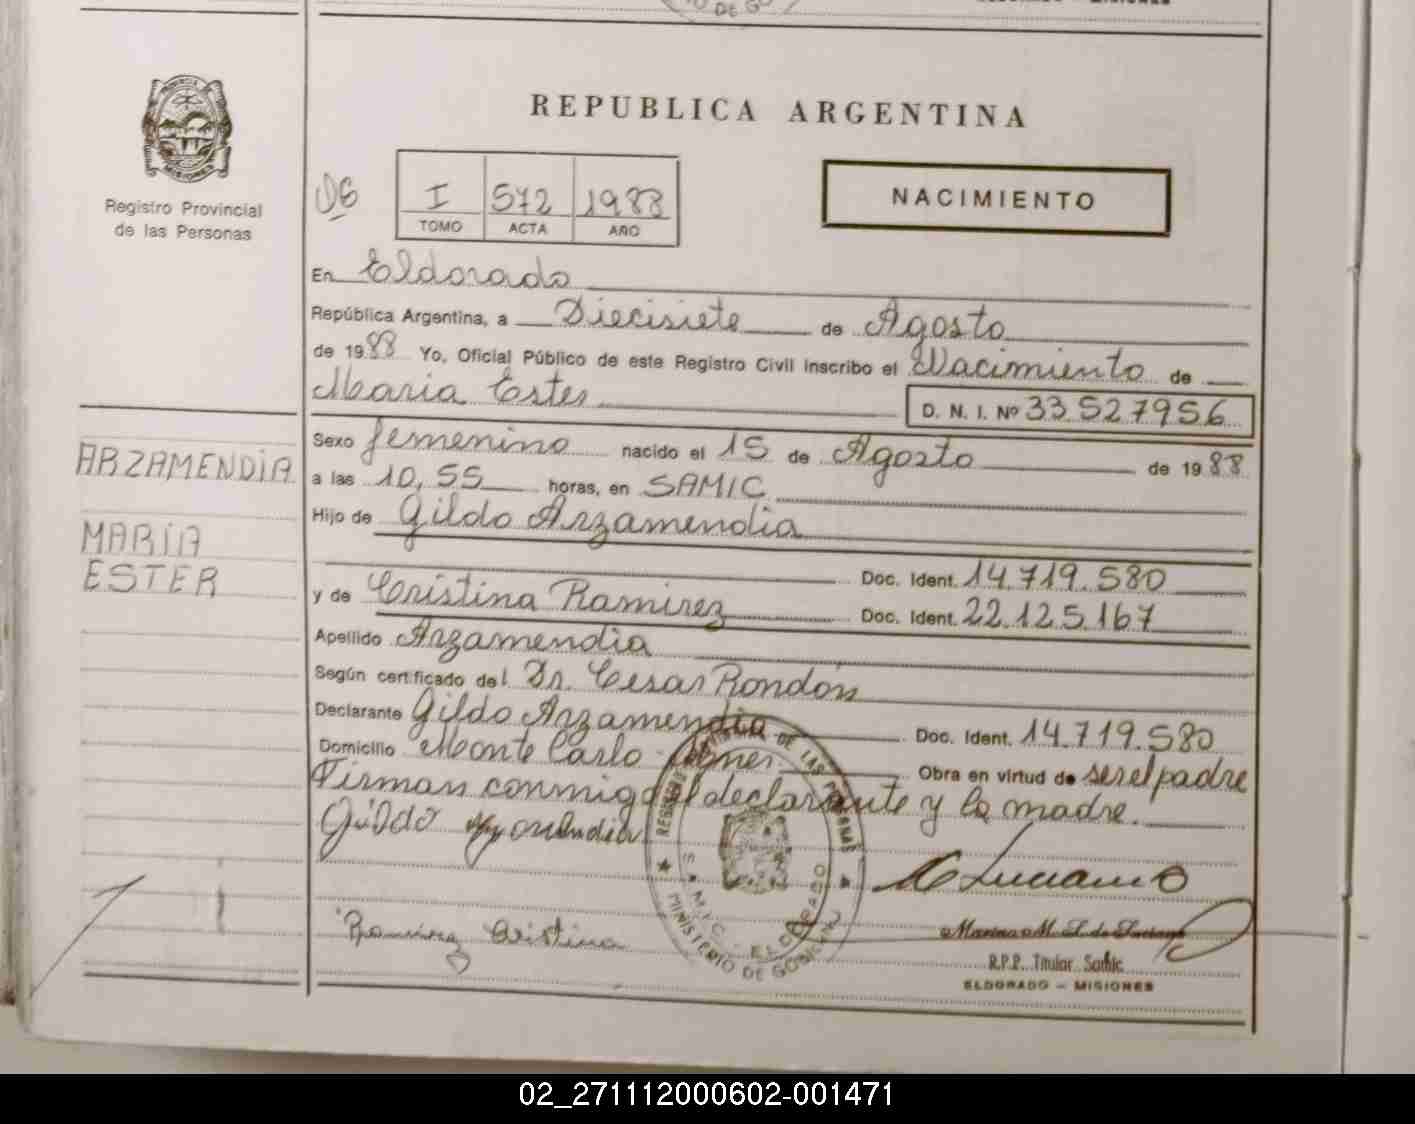 REPUBLICA ARGENTINA
PROVINCIA DE MISIONES
Registro Provincial
de las Personas
I 572 1988
TOMO ACTA AÑO
NACIMIENTO
En Eldorado
República Argentina, a Diecisiete de Agosto
de 1988 Yo, Oficial Público de este Registro Civil inscribo el Nacimiento de
Maria Ester D. N. I. Nº 33.527956
Sexo femenino nacido el 15 de Agosto de 1988
a las 10,55 horas, en SAMIC
Hijo de Gildo Arzamendia
Doc. Ident. 14.719.580
y de Cristina Ramirez Doc. Ident. 22.125.167
Apellido Arzamendia
Según certificado del Dr. Cesar Rondón
Declarante Gildo Arzamendia Doc. Ident. 14.719.580
Domicilio Monte Carlo Mnes. Obra en virtud de ser el padre
Firman conmigo el declarante y la madre.
Gildo
Luciano
Ramirez Cristina
R.P.P. Titular Samic
ELDORADO - MISIONES
ARZAMENDIA
MARIA
ESTER
DE LAS PERSONAS
S.A.M.I.C. - ELDORADO
MINISTERIO DE GOBIERNO
02_271112000602-001471